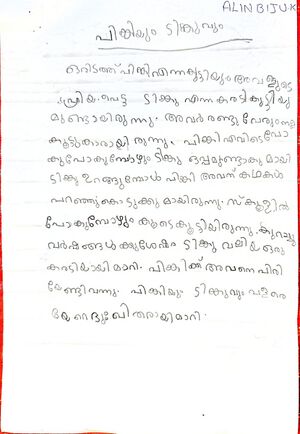 ALIN BIJU.K
പിങ്കിയും ടിങ്കുവും
ഒരിടത്ത് പിങ്കി എന്ന കുട്ടിയും അവളുടെ
പ്രിയപ്പെട്ട ടിങ്കു എന്ന കരടികുട്ടിയു
മുണ്ടായിരുന്നു. അവർ രണ്ടുപേരും നല്ല
കൂട്ടുകാരായിരുന്നു. പിങ്കി എവിടെപോ
കുപോകുമ്പോഴും ടിങ്കു ഒപ്പമുണ്ടാകുമായി
ടിങ്കു ഉറങ്ങുമ്പോൾ പിങ്കി അവന് കഥകൾ
പറഞ്ഞുകൊടുക്കുമായിരുന്നു. സ്കൂളിൽ
പോകുമ്പോഴും കൂടെ കൂട്ടിയിരുന്നു. കുറച്ചു
വർഷങ്ങൾക്കുശേഷം ടിങ്കു വലിയ ഒരു
കരടിയായി മാറി. പിങ്കിക്ക് അവനെ പിരി
യേണ്ടിവന്നു. പിങ്കിയും ടിങ്കുവും വളരെ
യേറെ ദുഃഖിതരായി മാറി.